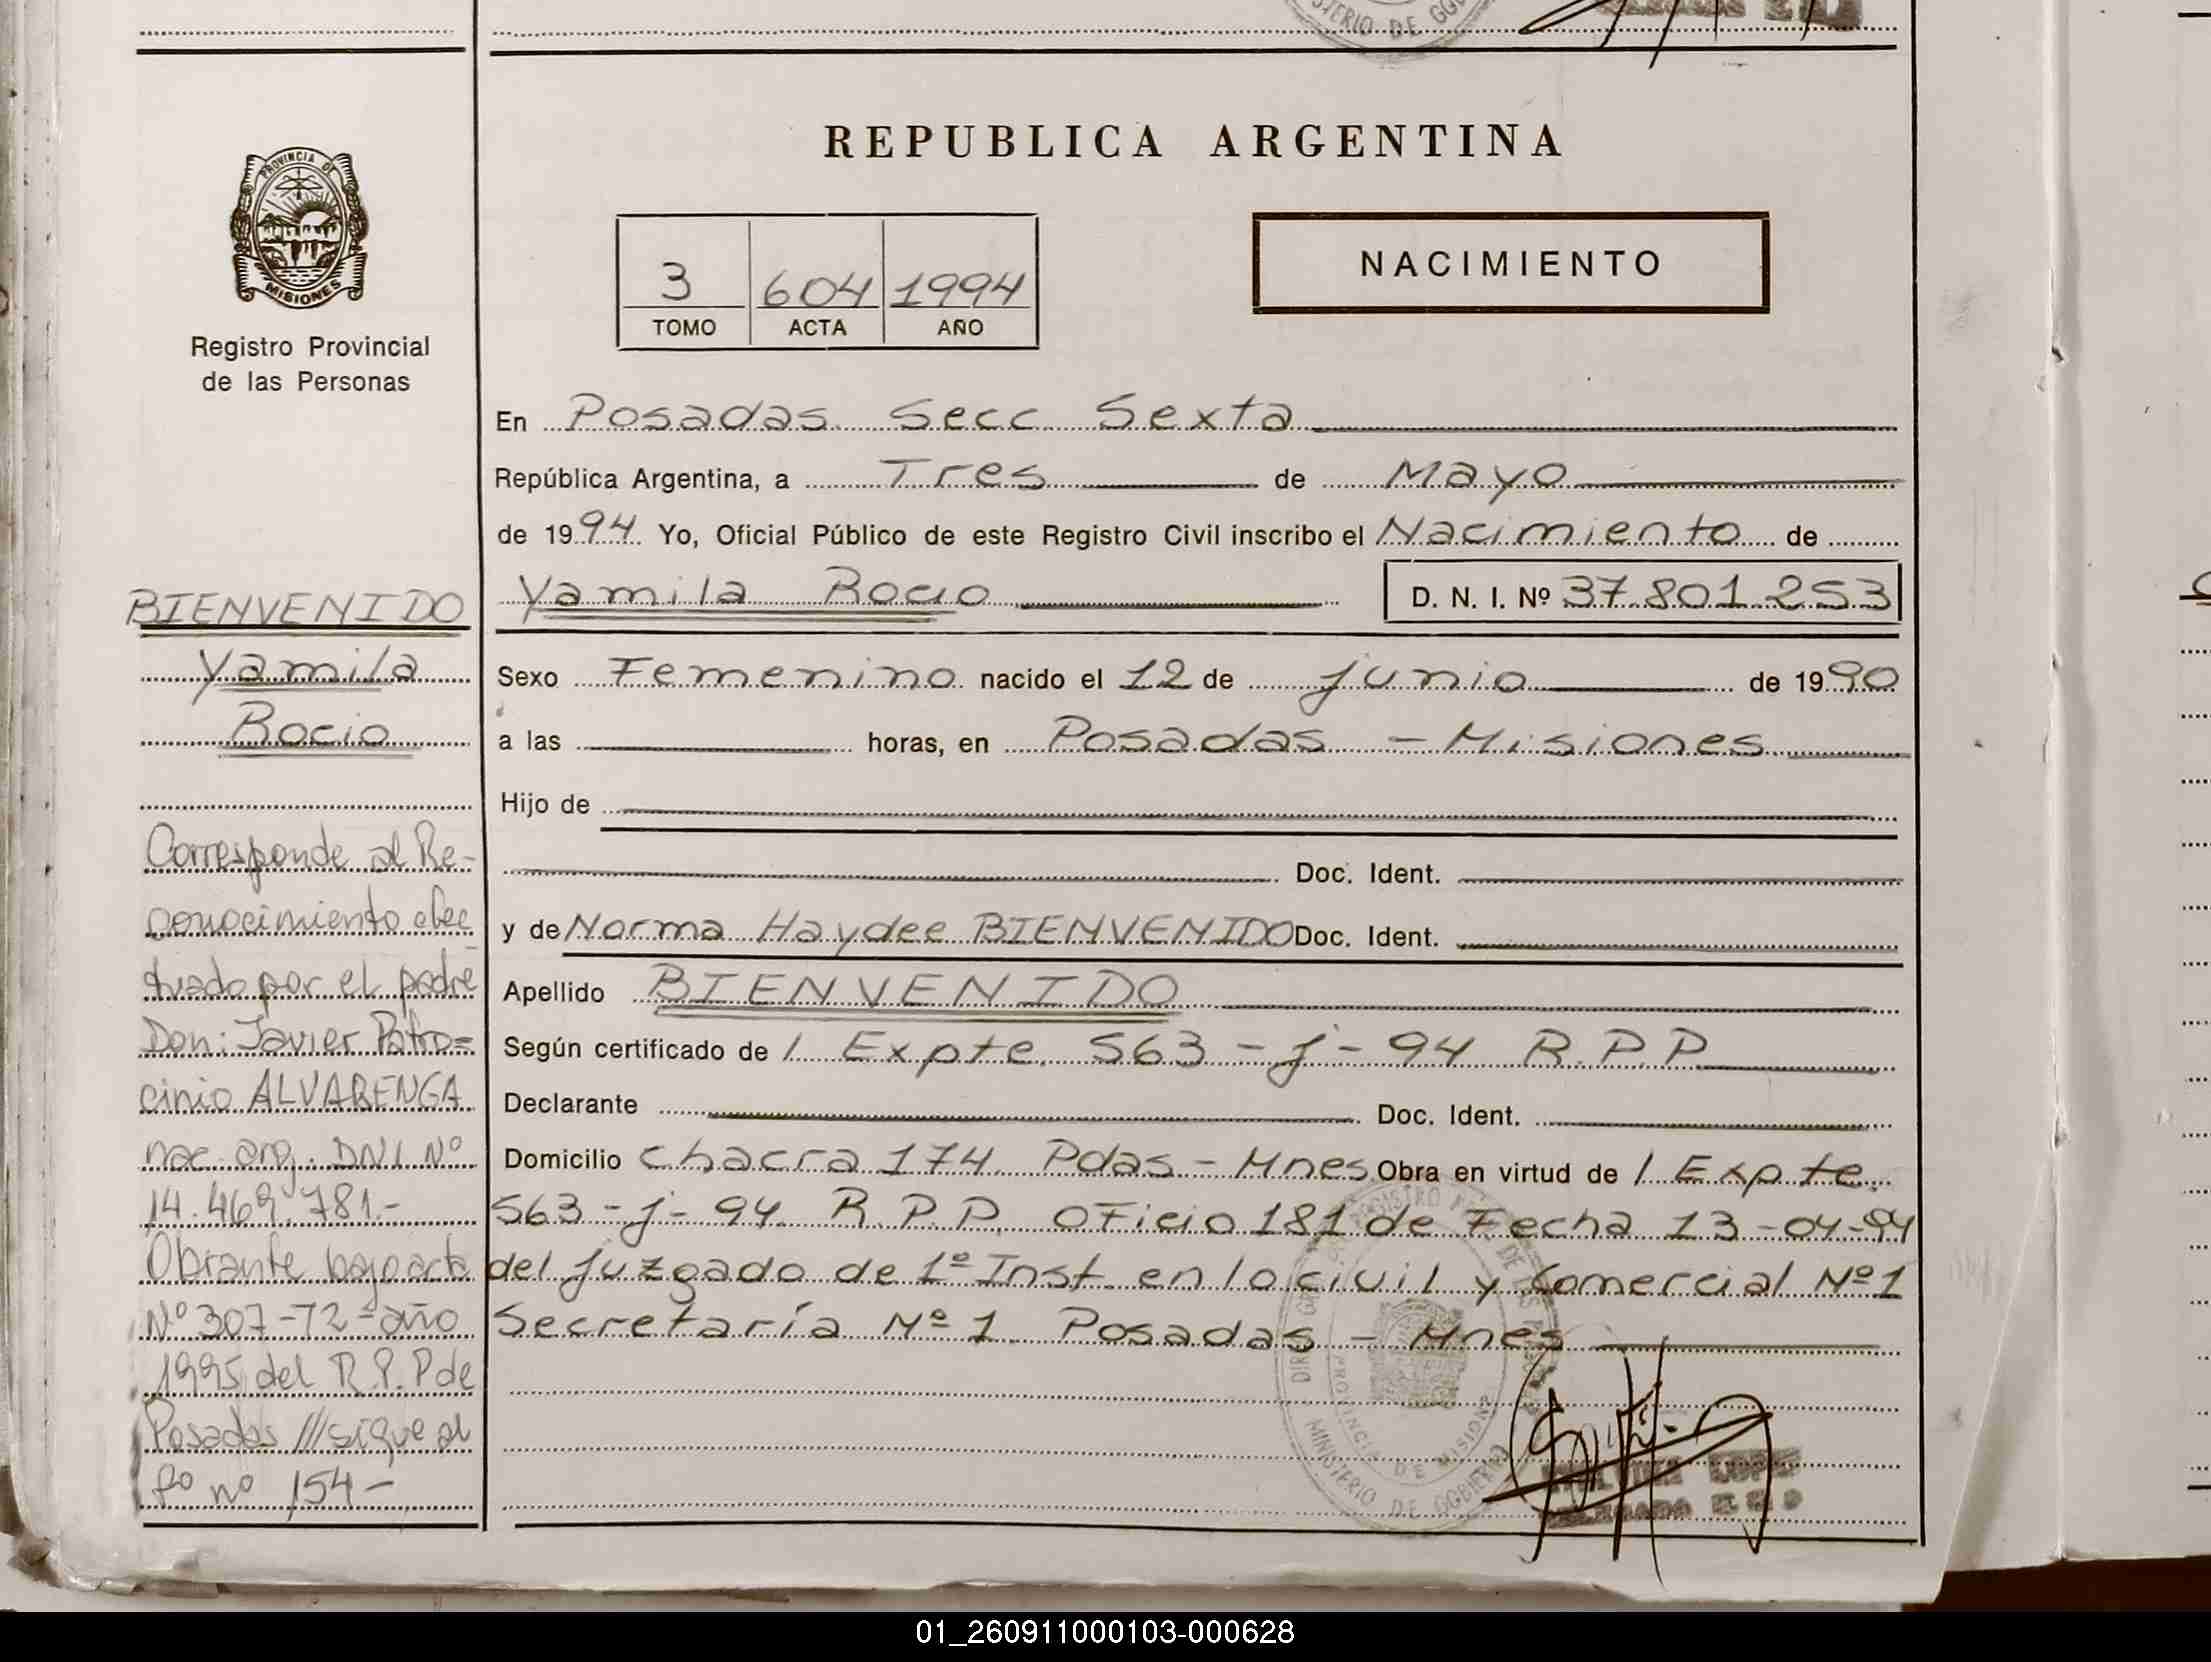 MINISTERIO DE GOB
REPUBLICA ARGENTINA
PROVINCIA DE
MISIONES
Registro Provincial
de las Personas
3 604 1994
TOMO ACTA AÑO
NACIMIENTO
En Posadas Secc Sexta
República Argentina, a Tres de Mayo
de 1994 Yo, Oficial Público de este Registro Civil inscribo el Nacimiento de
Yamila Rocio D. N. I. Nº 37.801.253
Sexo Femenino nacido el 12 de junio de 1990
a las horas, en Posadas - Misiones
Hijo de
Doc. Ident.
y de Norma Haydee BIENVENIDO Doc. Ident.
Apellido BIENVENIDO
Según certificado de / Expte. 563-j-94 R.P.P
Declarante Doc. Ident.
Domicilio Chacra 174. Pdas - Mnes Obra en virtud de / Expte.
563-j-94 R.P.P. OFicio 181 de Fecha 13-04-94
del juzgado de 1º Inst. en lo civil y Comercial Nº 1
Secretaría Nº 1 Posadas - Mnes
BIENVENIDO
Yamila
Rocio
Corresponde al Re-
conocimiento efec
tuado por el padre
Don: Javier Patro=
cinio ALVARENGA
nac. arg. DNI Nº
14.469.781.-
Obrante bajo acta
Nº 307-T2-año
1995 del R.P.P de
Posadas /// sigue al
fº nº 154-
PROVINCIA DE MISIONES
MINISTERIO DE GOBIERNO
01_260911000103-000628